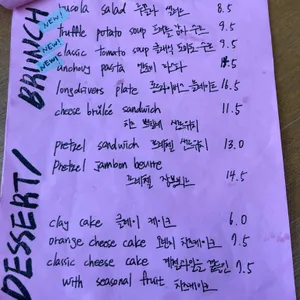 BRUNCH
NEW!
NEW!
NEW!
rucola salad 루꼴라 샐러드 8.5
truffle potato soup 트러플 감자 수프 9.5
classic tomato soup 클래식 토마토 수프 9.5
anchovy pasta 앤초비 파스타
longdrivers plate 롱드라이버스 플레이트 16.5
cheese brûlée sandwich 11.5
치즈 브륄레 샌드위치
pretzel sandwich 프레첼 샌드위치 13.0
Pretzel jambon beurre
프레첼 잠봉뵈르 14.5
DESSERT/
clay cake 클레이 케이크 6.0
orange cheese cake 오렌지 치즈케이크 7.5
classic cheese cake 계절과일을 곁들인 7.5
with seasonal fruit 치즈케이크